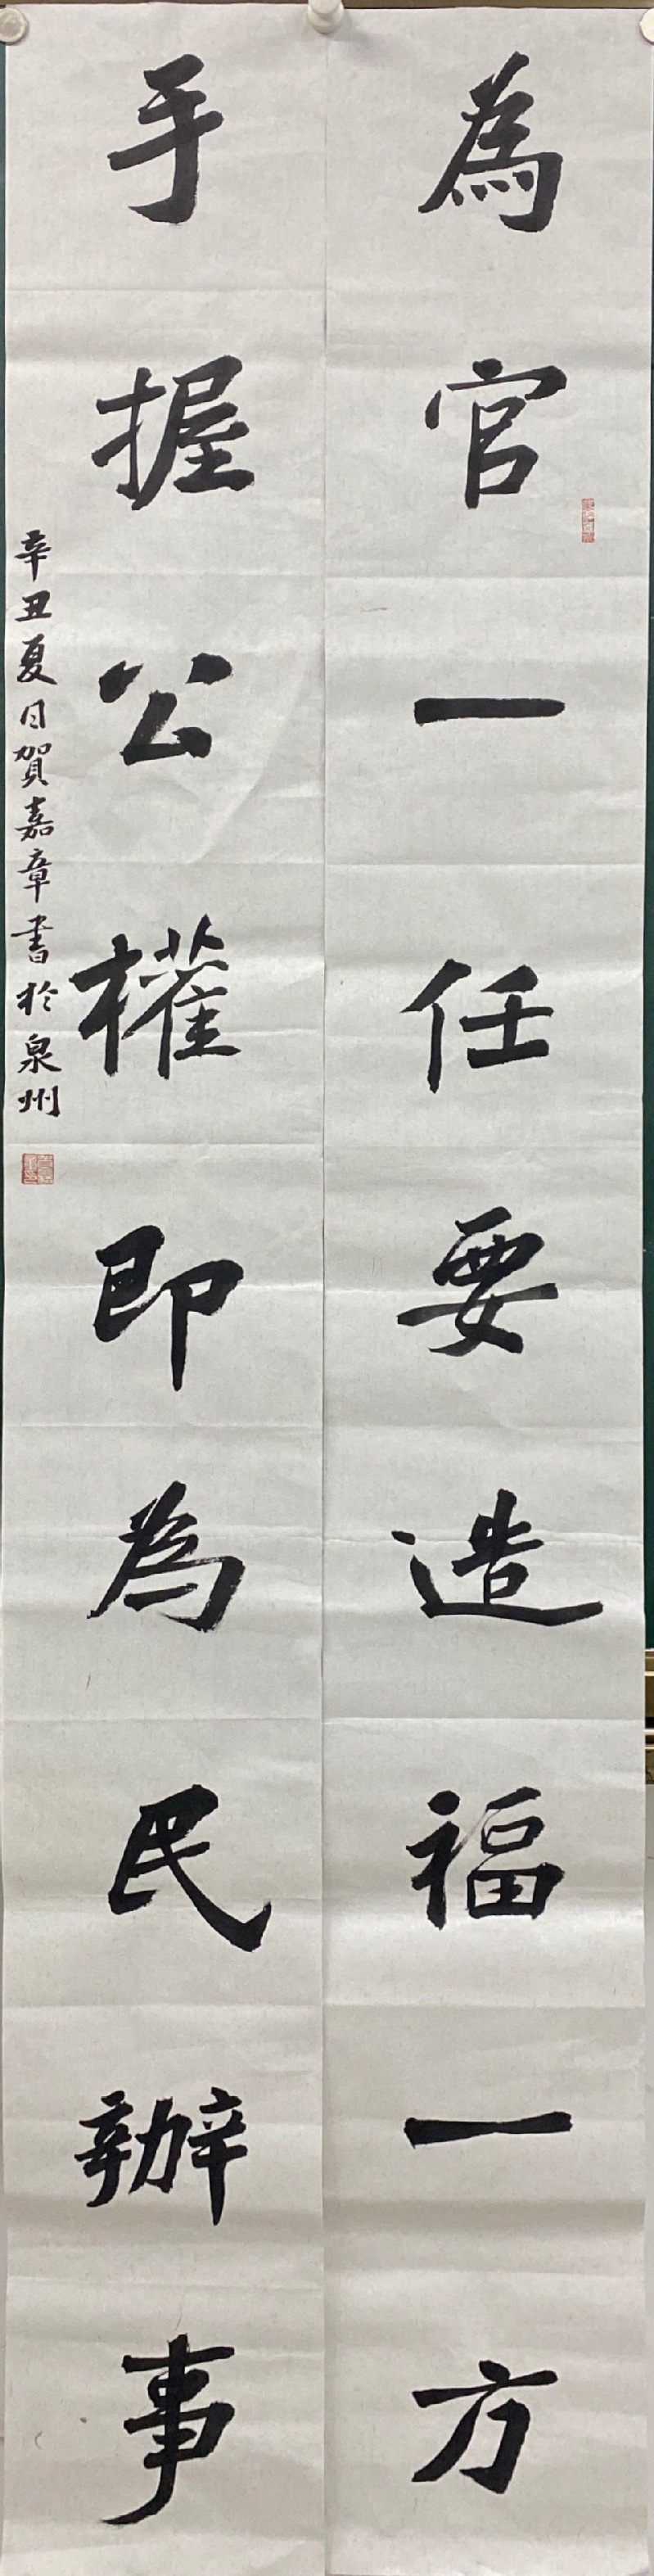 為官一任要造福一方
手握公權即為民辦事
辛丑夏日賀嘉章書於泉州